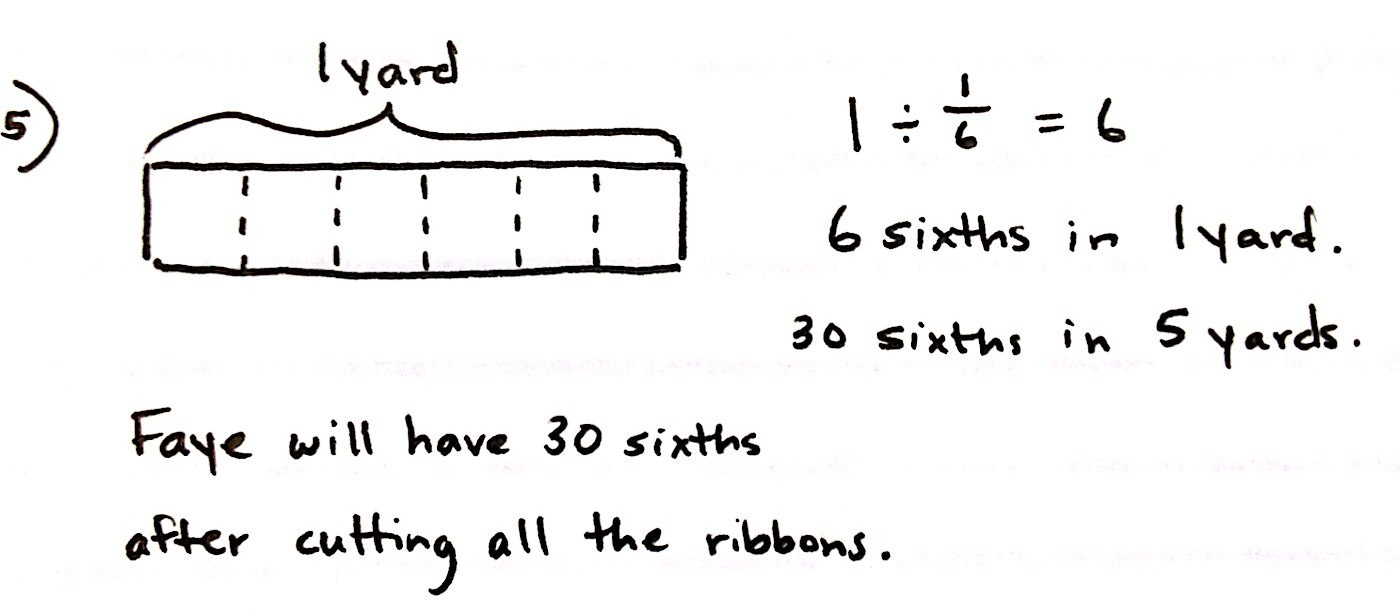 5)
1 yard
1 ÷ 1/6 = 6
6 sixths in 1 yard.
30 sixths in 5 yards.
Faye will have 30 sixths
after cutting all the ribbons.